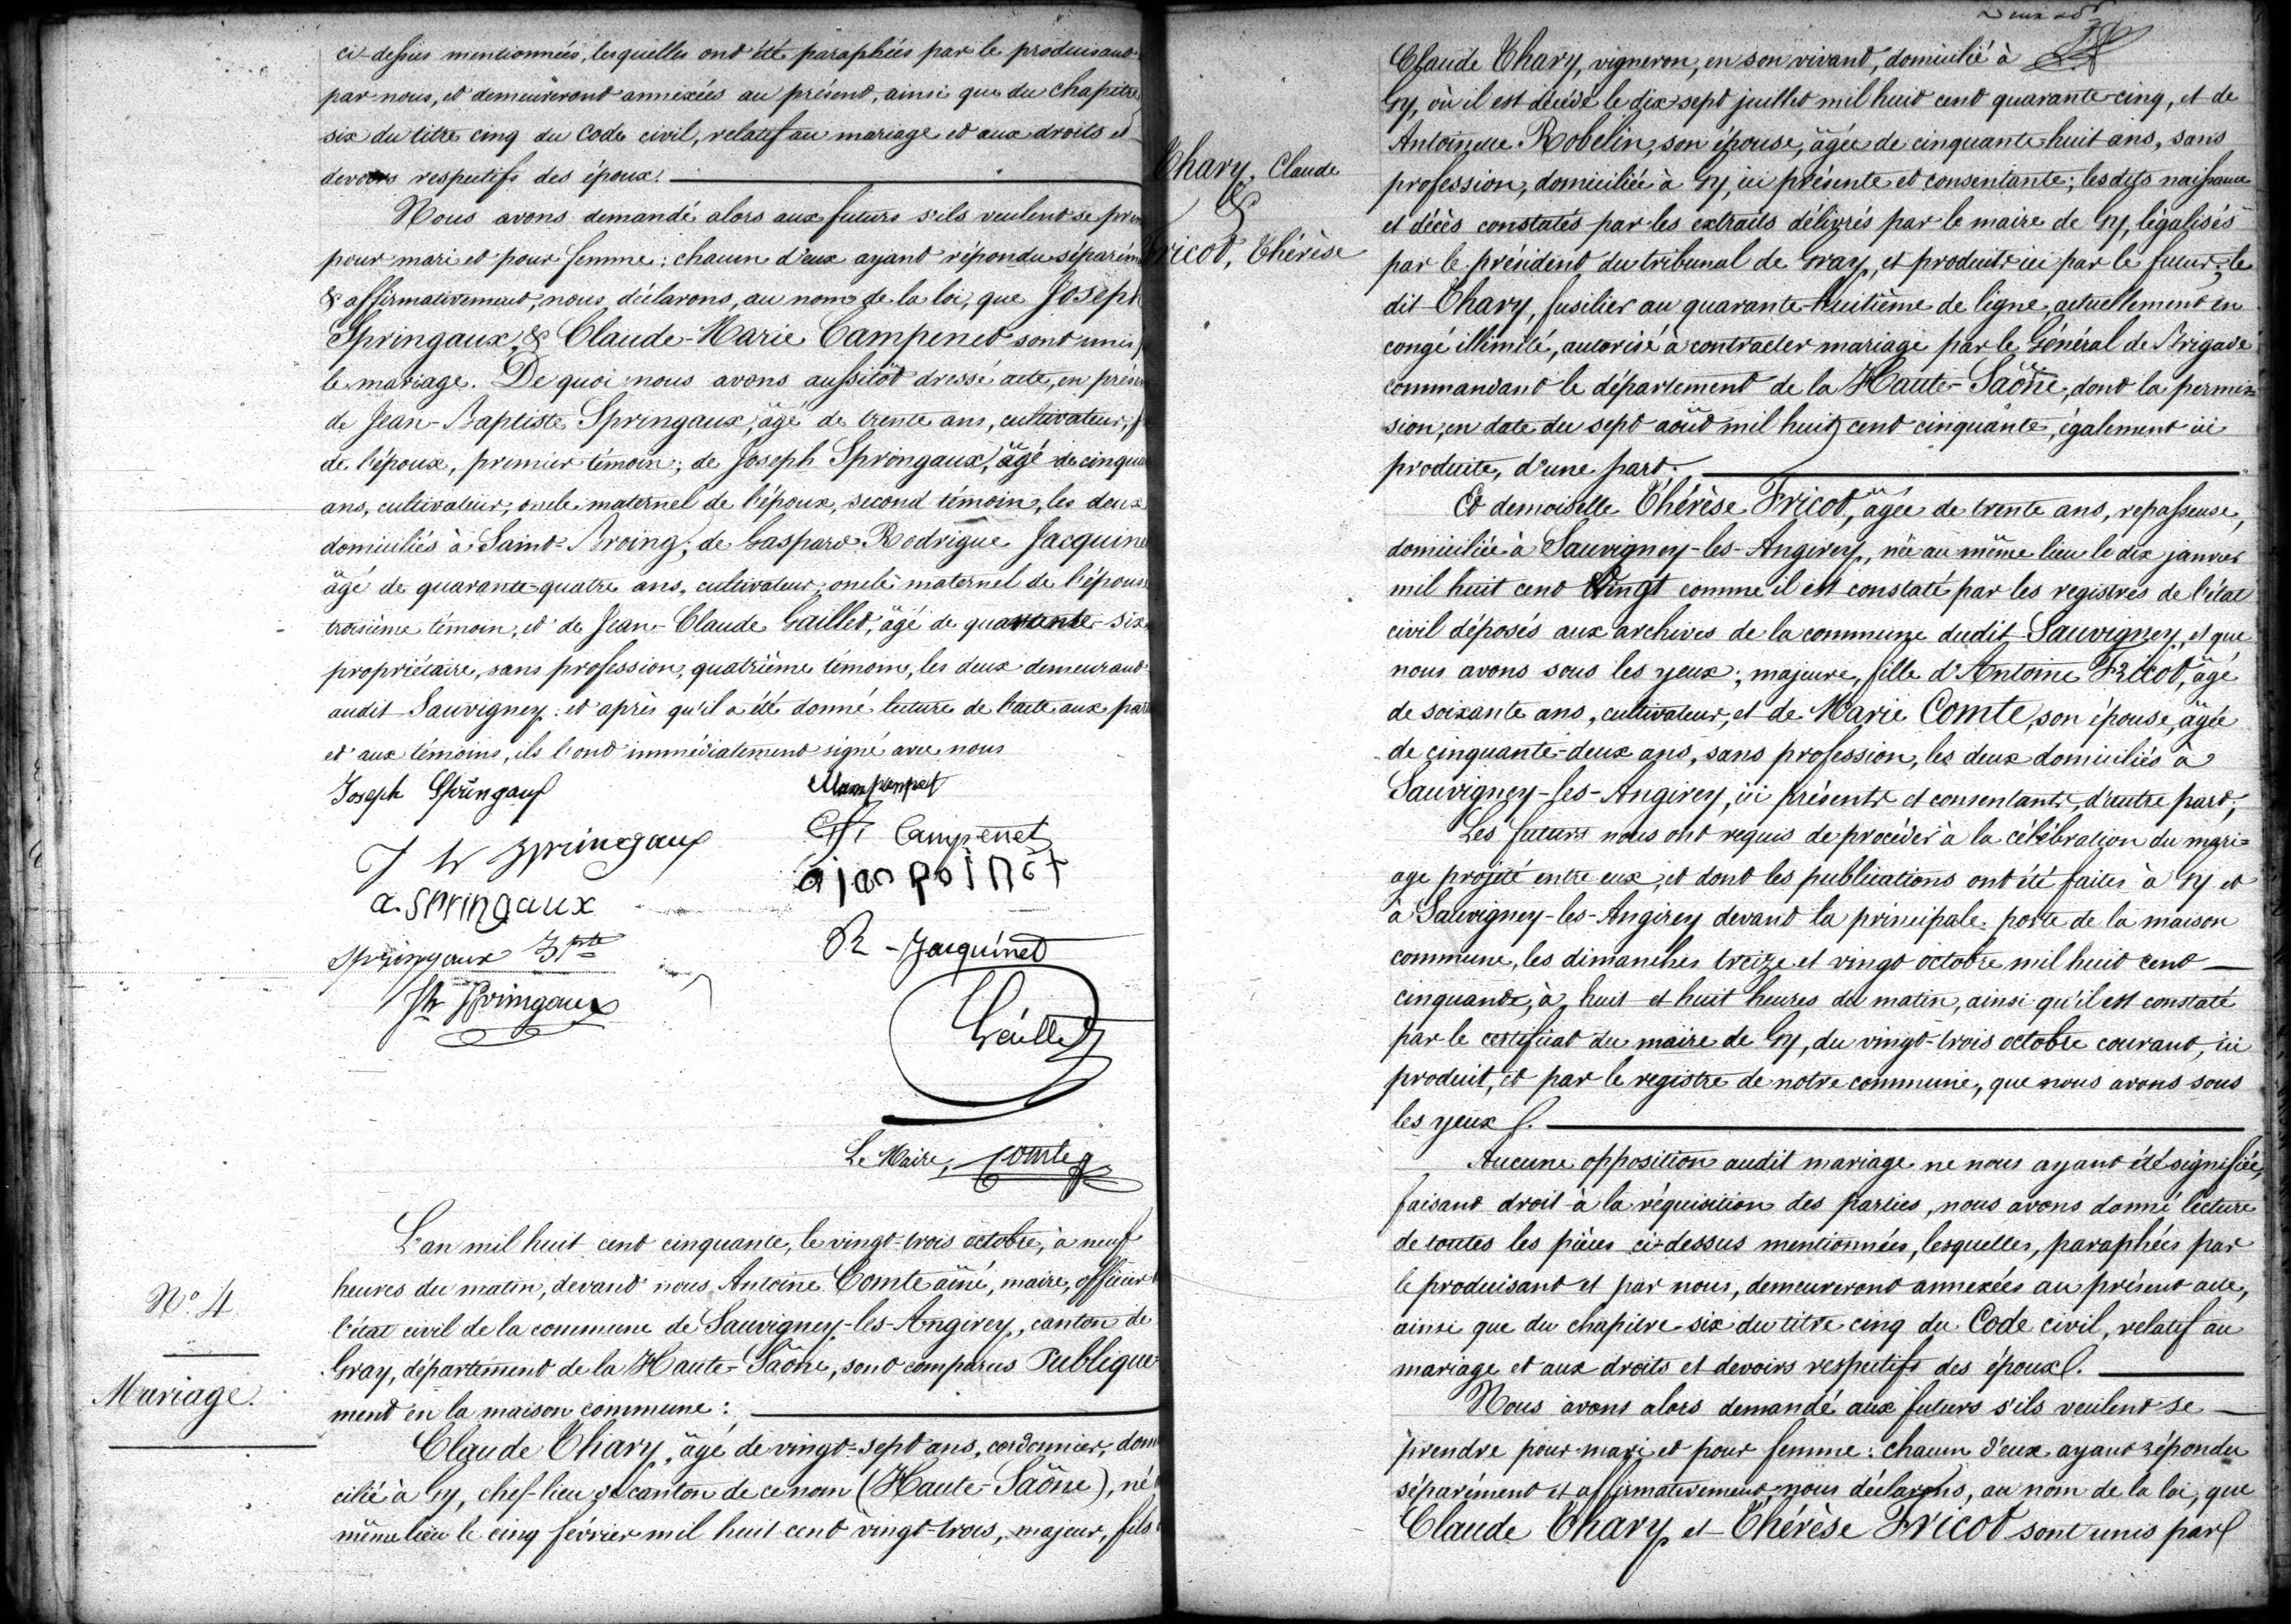 ci-dessus mentionnées, lesquelles ont été paraphées par le produisant
par nous, et demeureront annexées au présent, ainsi que du chapitre
six du titre cinq du Code civil, relatif au mariage et aux droits et
devoirs respectifs des époux.
Nous avons demandé alors aux futurs s'ils veulent se
pour mari et pour femme : chacun d'eux ayant répondu
& affirmativement, nous déclarons, au nom de la loi, que Joseph
Springaux & Claude-Marie Campenet sont unis
le mariage. De quoi nous avons aussitôt dressé acte, en
de Jean-Baptiste Springaux, âgé de trente ans, cultivateur,
de l'époux, premier témoin ; de Joseph Springaux, âgé de
ans, cultivateur, oncle maternel de l'époux, second témoin, les deux
domiciliés à Saint-Broing ; de Gaspard Rodrigue
âgé de quarante-quatre ans, cultivateur, oncle maternel de
troisième témoin, et de Jean-Claude Gaillet, âgé de quarante-six
propriétaire, sans profession, quatrième témoin, les deux demeurant
audit Sauvigney : et après qu'il a été donné lecture de l'acte aux
et aux témoins, ils l'ont immédiatement signé avec nous
Joseph Springaux
Campenet
J Springaux
a. Springaux
Springaux Bpte
R - Jacquinet
Springaux
Gaillet
Le Maire, Comte
N° 4
Mariage.
L'an mil huit cent cinquante, le vingt-trois octobre, à neuf
heures du matin, devant nous Antoine Comte aîné, maire, officier
l'état civil de la commune de Sauvigney-les-Angirey, canton de
Gray, département de la Haute-Saône, sont comparus Publique-
ment en la maison commune :
Claude Chary, âgé de vingt-sept ans, cordonnier, domi
cilié à Gy, chef-lieu de canton de ce nom (Haute-Saône), né
même lieu le cinq février mil huit cent vingt-trois, majeur, fils
Chary, Claude
&
Fricot, Thérèse
Claude Chary, vigneron, en son vivant, domicilié à
Gy, où il est décédé le dix sept juillet mil huit cent quarante-cinq, et de
Antoinette Robelin, son épouse, âgée de cinquante huit ans, sans
profession, domiciliée à Gy, ici présente et consentante ; lesdits naissance
et décès constatés par les extraits délivrés par le maire de Gy, légalisés
par le président du tribunal de Gray, et produits ici par le futur ; le
dit Chary, fusilier au quarante-huitième de ligne, actuellement en
congé illimité, autorisé à contracter mariage par le Général de Brigade
commandant le département de la Haute-Saône, dont la permis=
sion, en date du sept août mil huit cent cinquante, également ici
produite, d'une part.
Et demoiselle Thérèse Fricot, âgée de trente ans, repasseuse,
domiciliée à Sauvigney-les-Angirey, née au même lieu le dix janvier
mil huit cent Vingt comme il est constaté par les registres de l'état
civil déposés aux archives de la commune dudit Sauvigney, et que
nous avons sous les yeux ; majeure, fille d'Antoine Fricot, âgé
de soixante ans, cultivateur, et de Marie Comte, son épouse, âgée
de cinquante-deux ans, sans profession, les deux domiciliés à
Sauvigney-les-Angirey, ici présents et consentants, d'autre part ;
Les futurs nous ont requis de procéder à la célébration du mari=
age projeté entre eux, et dont les publications ont été faites à Gy et
à Sauvigney-les-Angirey devant la principale porte de la maison
commune, les dimanches treize et vingt octobre mil huit cent
cinquante, à huit et huit heures du matin, ainsi qu'il est constaté
par le certificat du maire de Gy, du vingt-trois octobre courant, ici
produit, et par le registre de notre commune, que nous avons sous
les yeux.
Aucune opposition audit mariage ne nous ayant été signifiée,
faisant droit à la réquisition des parties, nous avons donné lecture
de toutes les pièces ci-dessus mentionnées, lesquelles, paraphées par
le produisant et par nous, demeureront annexées au présent acte,
ainsi que du chapitre six du titre cinq du Code civil, relatif au
mariage et aux droits et devoirs respectifs des époux.
Nous avons alors demandé aux futurs s'ils veulent se
prendre pour mari et pour femme : chacun d'eux ayant répondu
séparément et affirmativement, nous déclarons, au nom de la loi, que
Claude Chary et Thérèse Fricot sont unis par